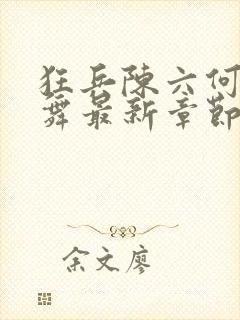 狂兵陈六何
舞最新章節
余文廖